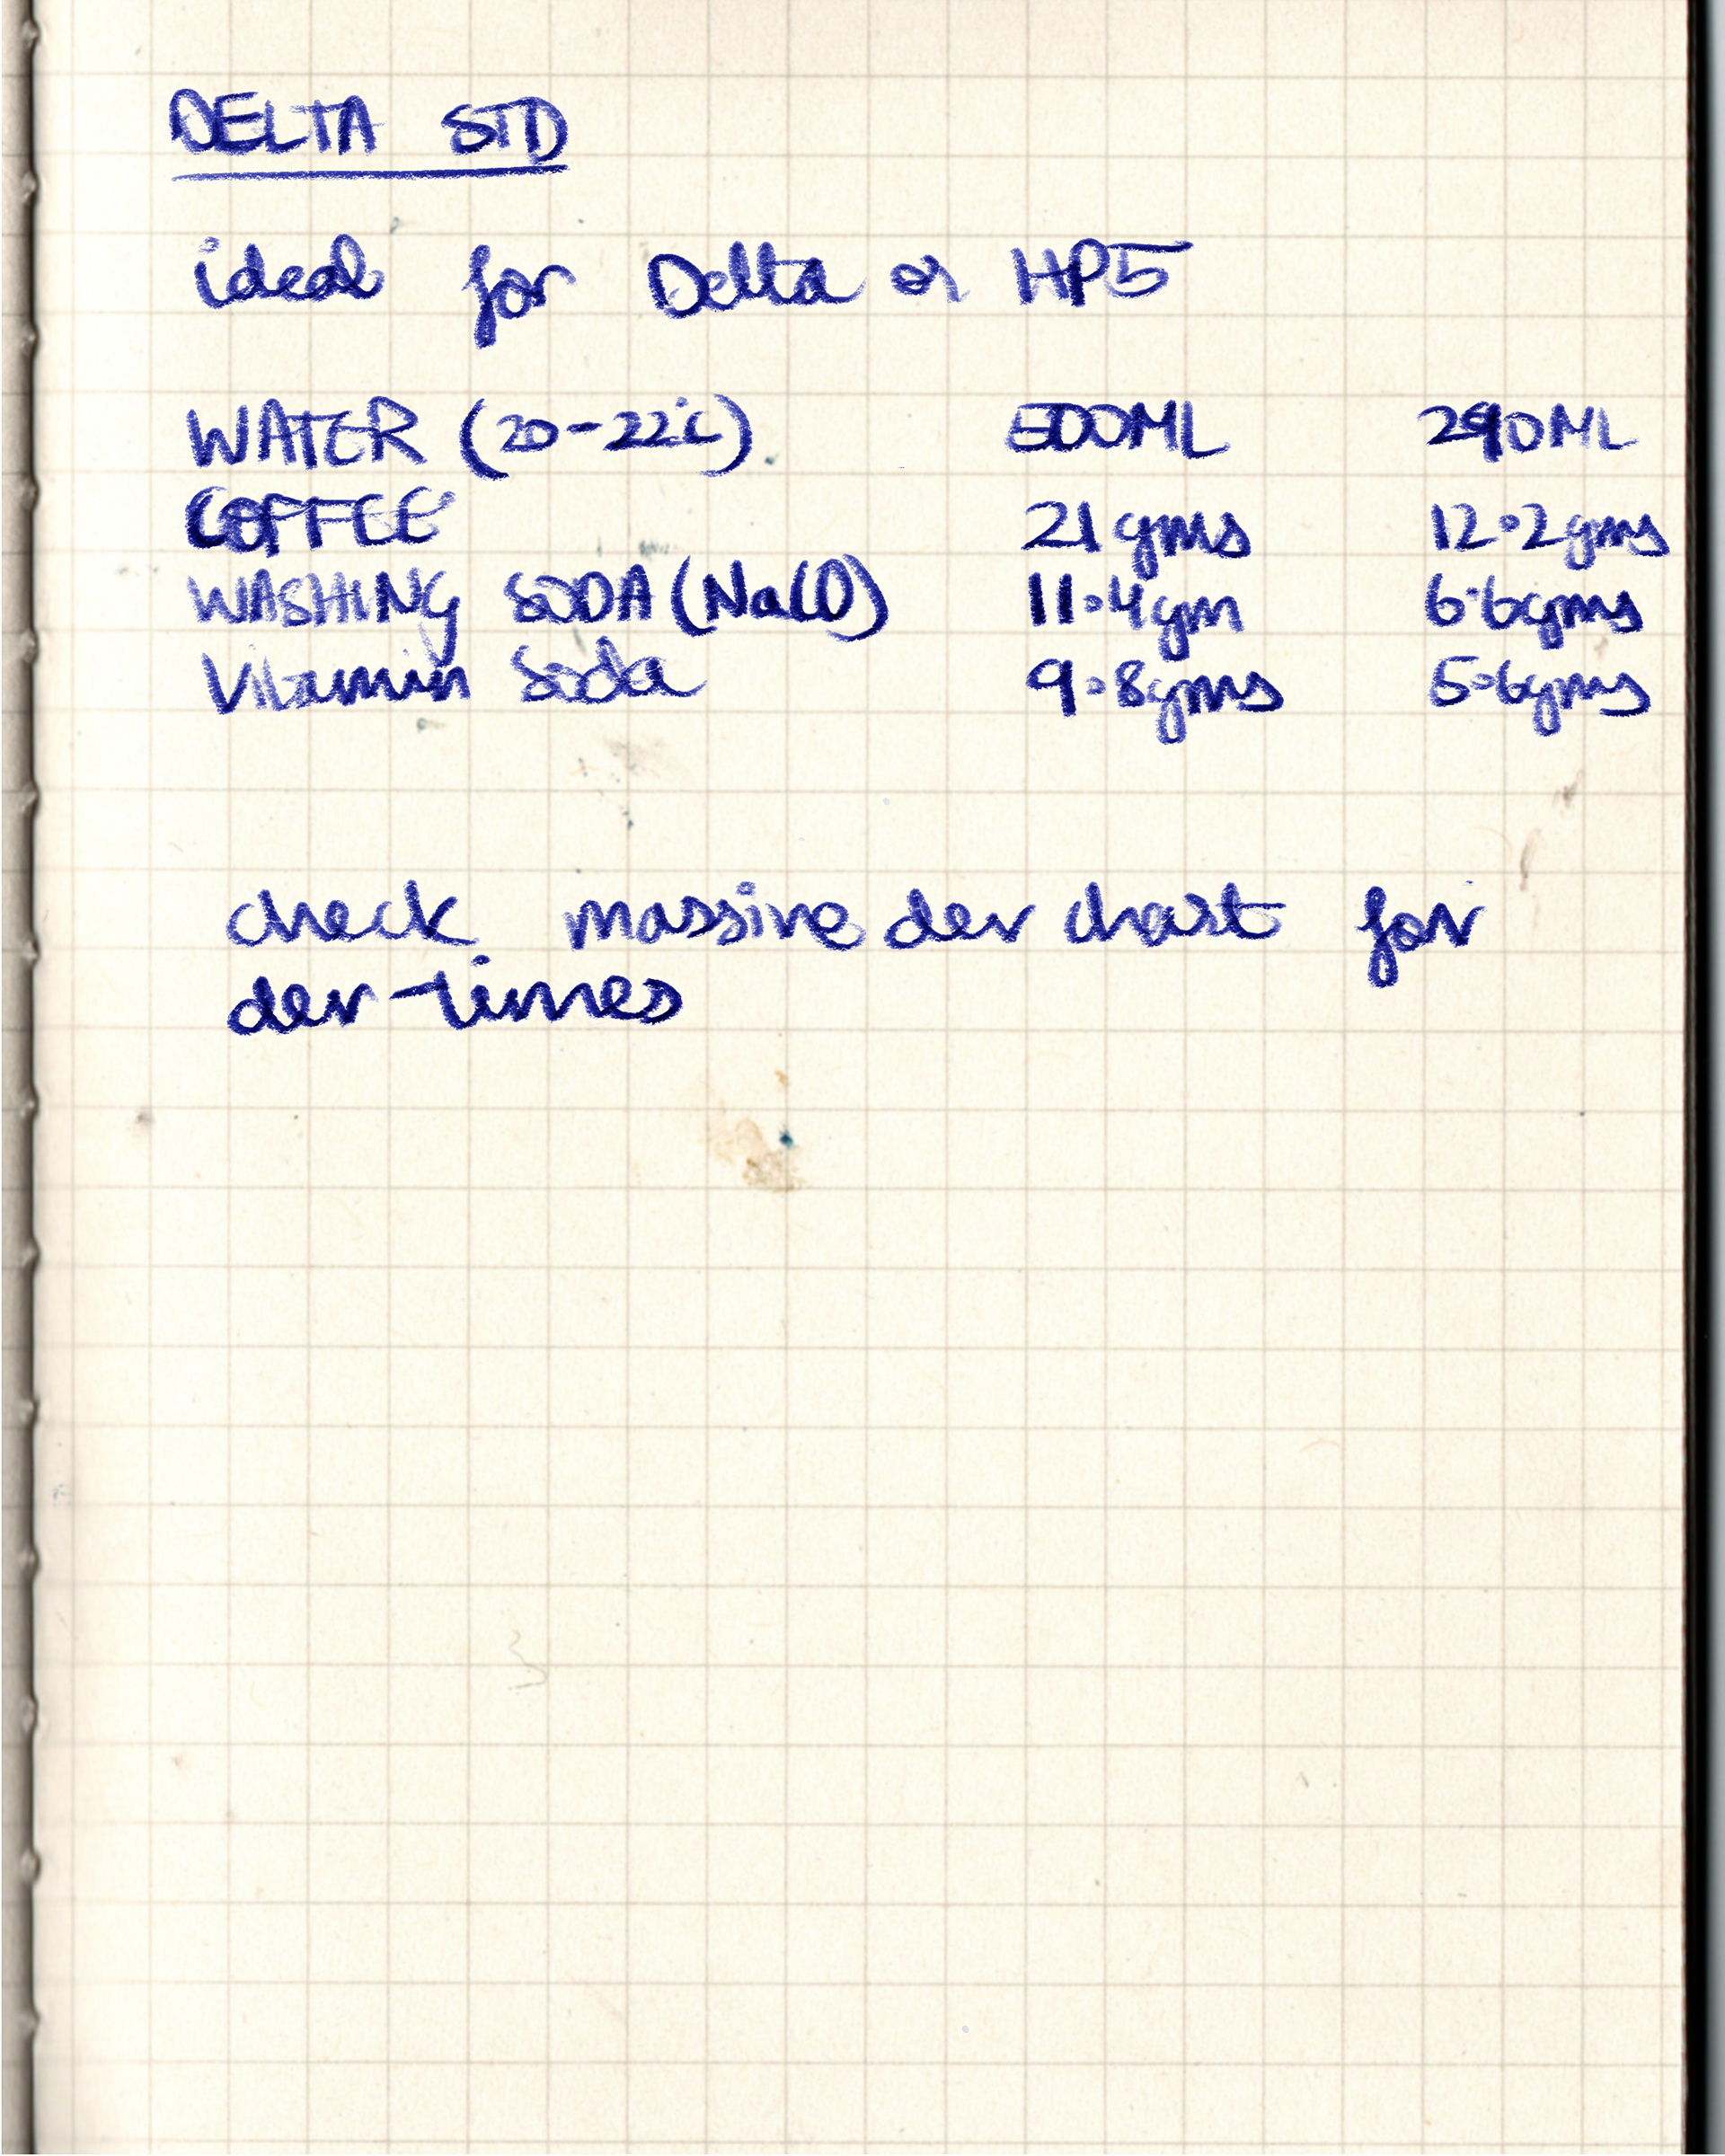 DELTA STD
ideal for Delta or HP5
WATER (20-22°c) 500ML 290ML
COFFEE 21gms 12.2gms
WASHING SODA (NaCO) 11.4gm 6.6gms
Vitamin Soda 9.8gms 5.6gms
check massive dev chart for
dev-times